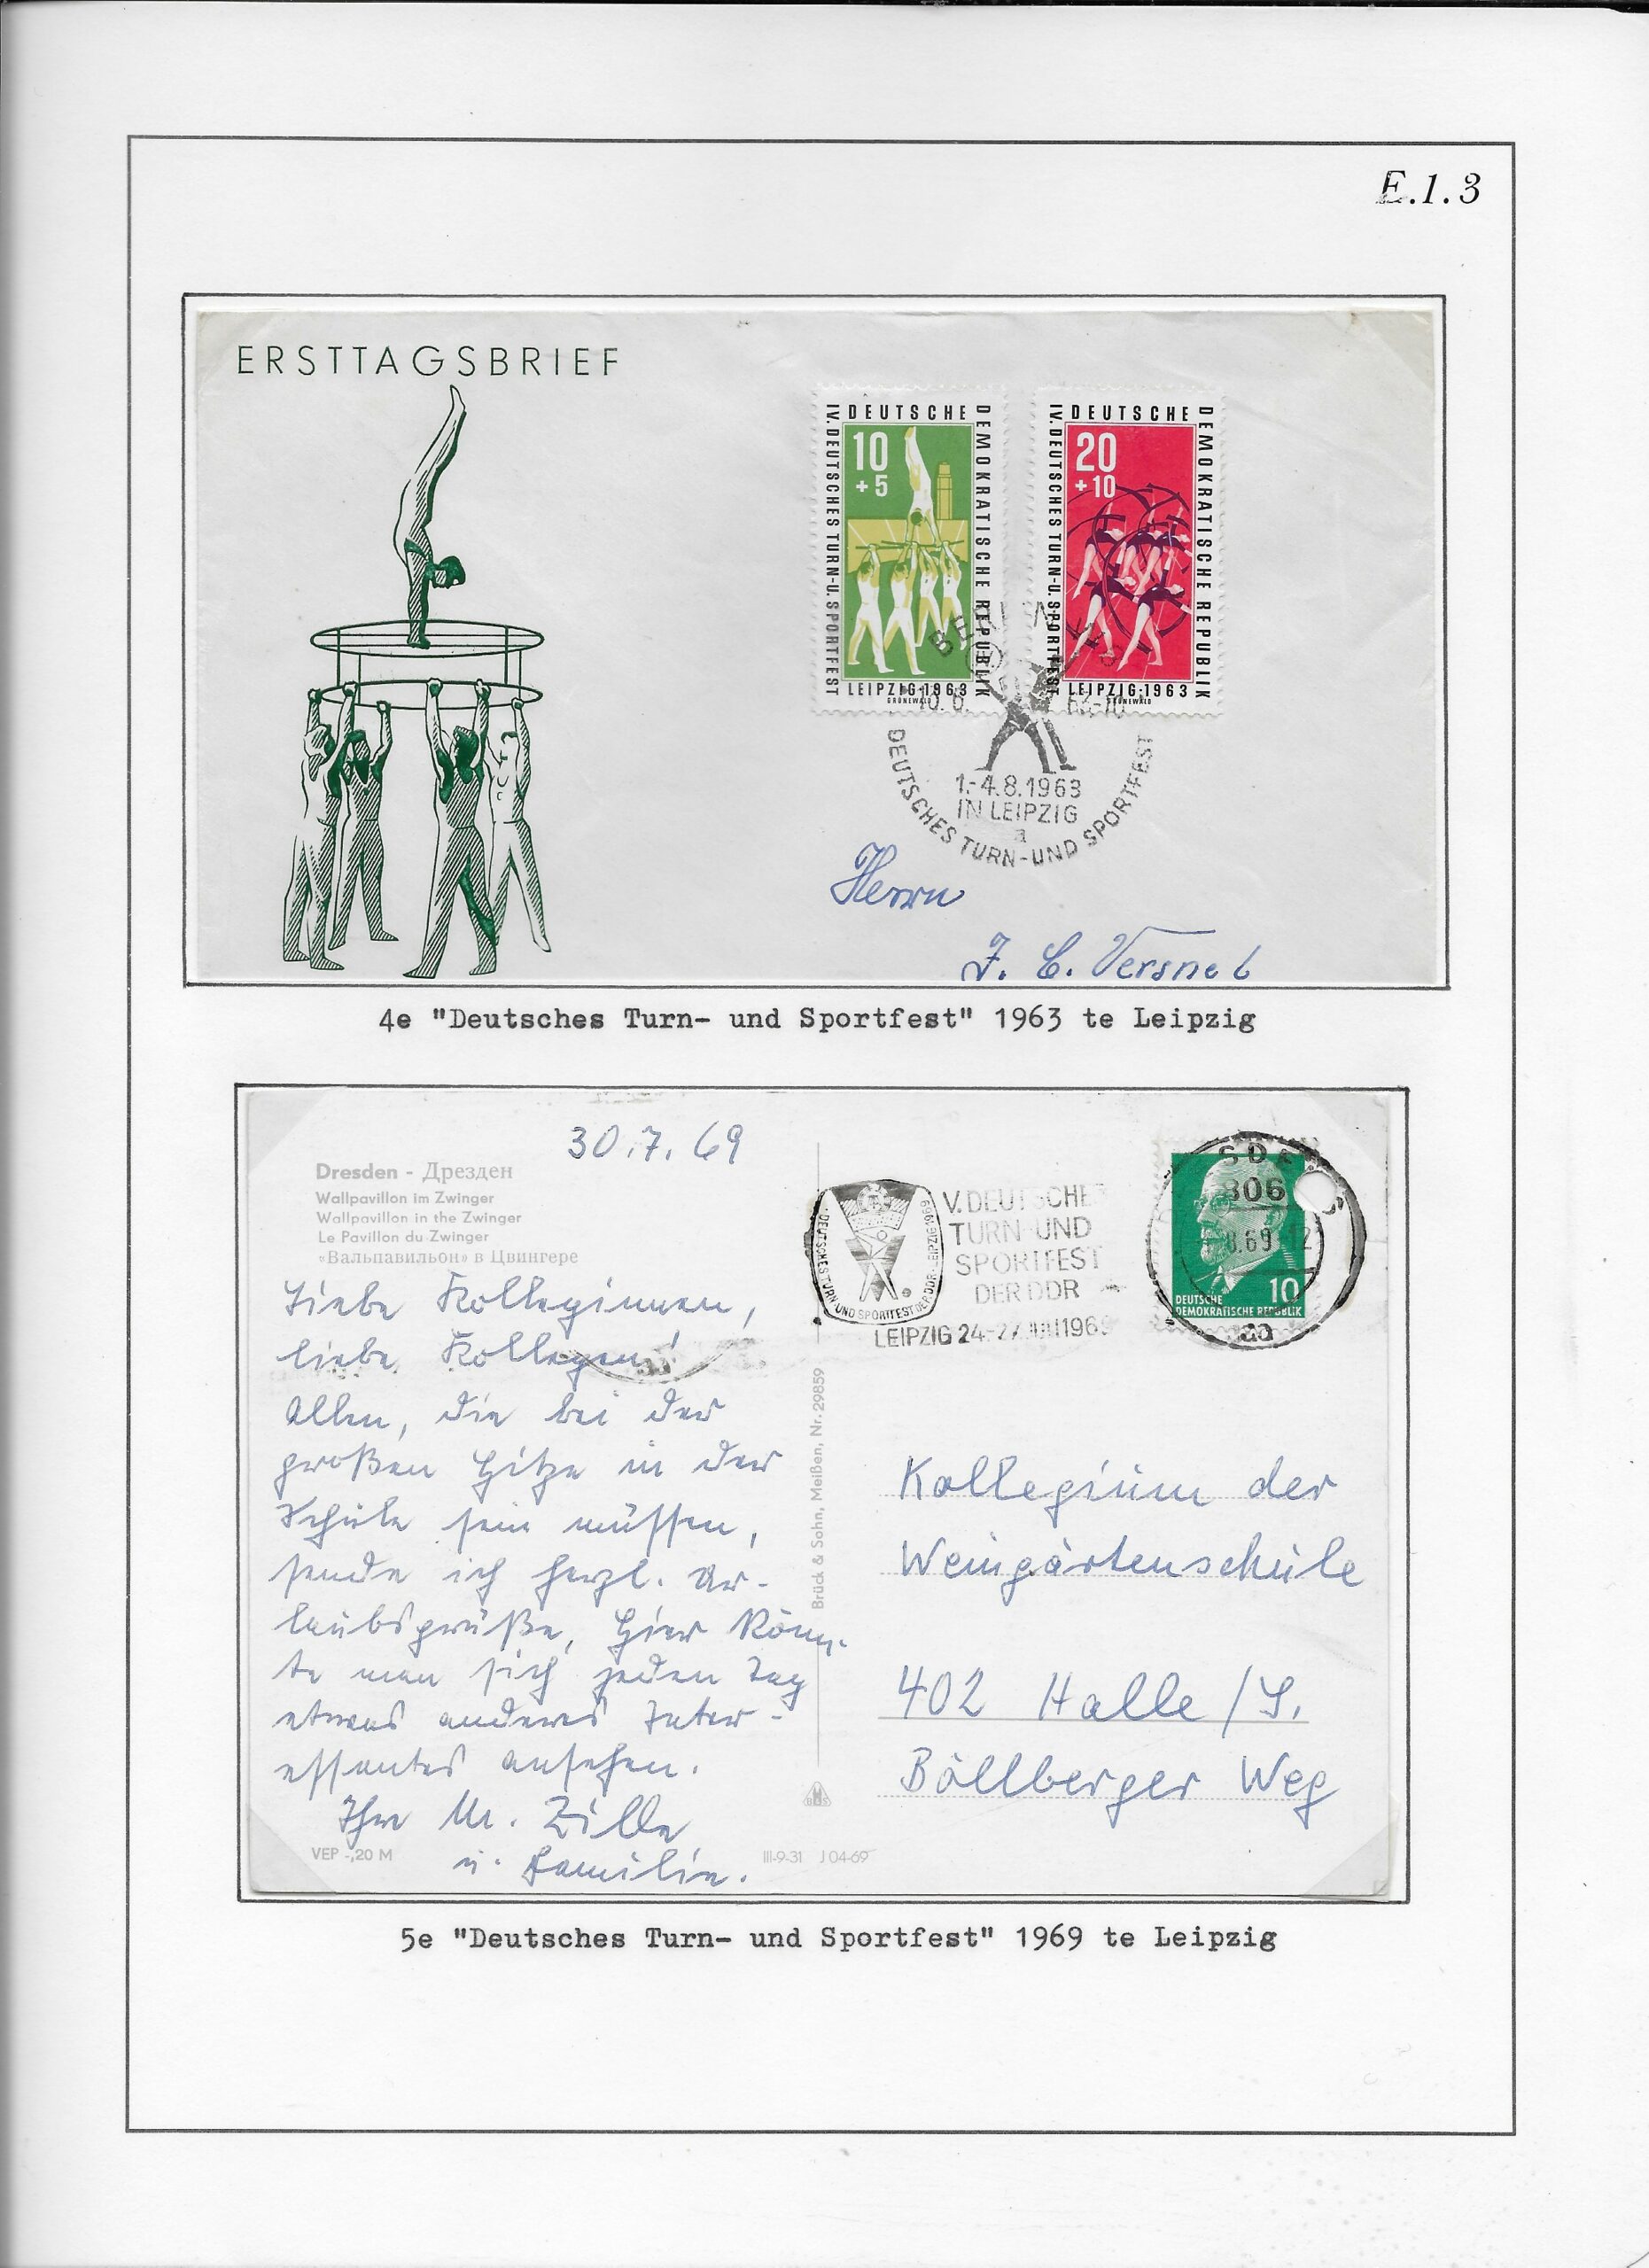 E.1.3
ERSTTAGSBRIEF
DEUTSCHE
DEMOKRATISCHE REPUBLIK
IV. DEUTSCHES TURN-U. SPORTFEST
10
+5
LEIPZIG·1963
GRÜNEWALD
DEUTSCHE
DEMOKRATISCHE REPUBLIK
IV. DEUTSCHES TURN-U. SPORTFEST
20
+10
LEIPZIG·1963
GRÜNEWALD
BERLIN
1.-4.8.1963
IN LEIPZIG
a
DEUTSCHES TURN-UND SPORTFEST
Herrn
J. C. Versnel
4e "Deutsches Turn- und Sportfest" 1963 te Leipzig
30.7.69
Dresden - Дрезден
Wallpavillon im Zwinger
Wallpavillon in the Zwinger
Le Pavillon du Zwinger
«Вальпавильон» в Цвингере
Liebe Kolleginnen,
liebe Kollegen!
Allen, die bei der
großen Hitze in der
Schule sein müssen,
sende ich herzl. Ur-
laubsgrüße. Hier könn-
te man sich jeden Tag
etwas anderes Inter-
essantes ansehen.
Ihr M. Zille
u. Familie.
VEP -,20 M
III-9-31 J 04-69
Brück & Sohn, Meißen, Nr. 29859
DEUTSCHES TURN-UND SPORTFEST DER DDR LEIPZIG 1969
V. DEUTSCHES
TURN-UND
SPORTFEST
DER DDR
LEIPZIG 24-27. JULI 1969
806
8.69-12
10
DEUTSCHE
DEMOKRATISCHE REPUBLIK
Kollegium der
Weingärtenschule
402 Halle/S.
Böllberger Weg
5e "Deutsches Turn- und Sportfest" 1969 te Leipzig